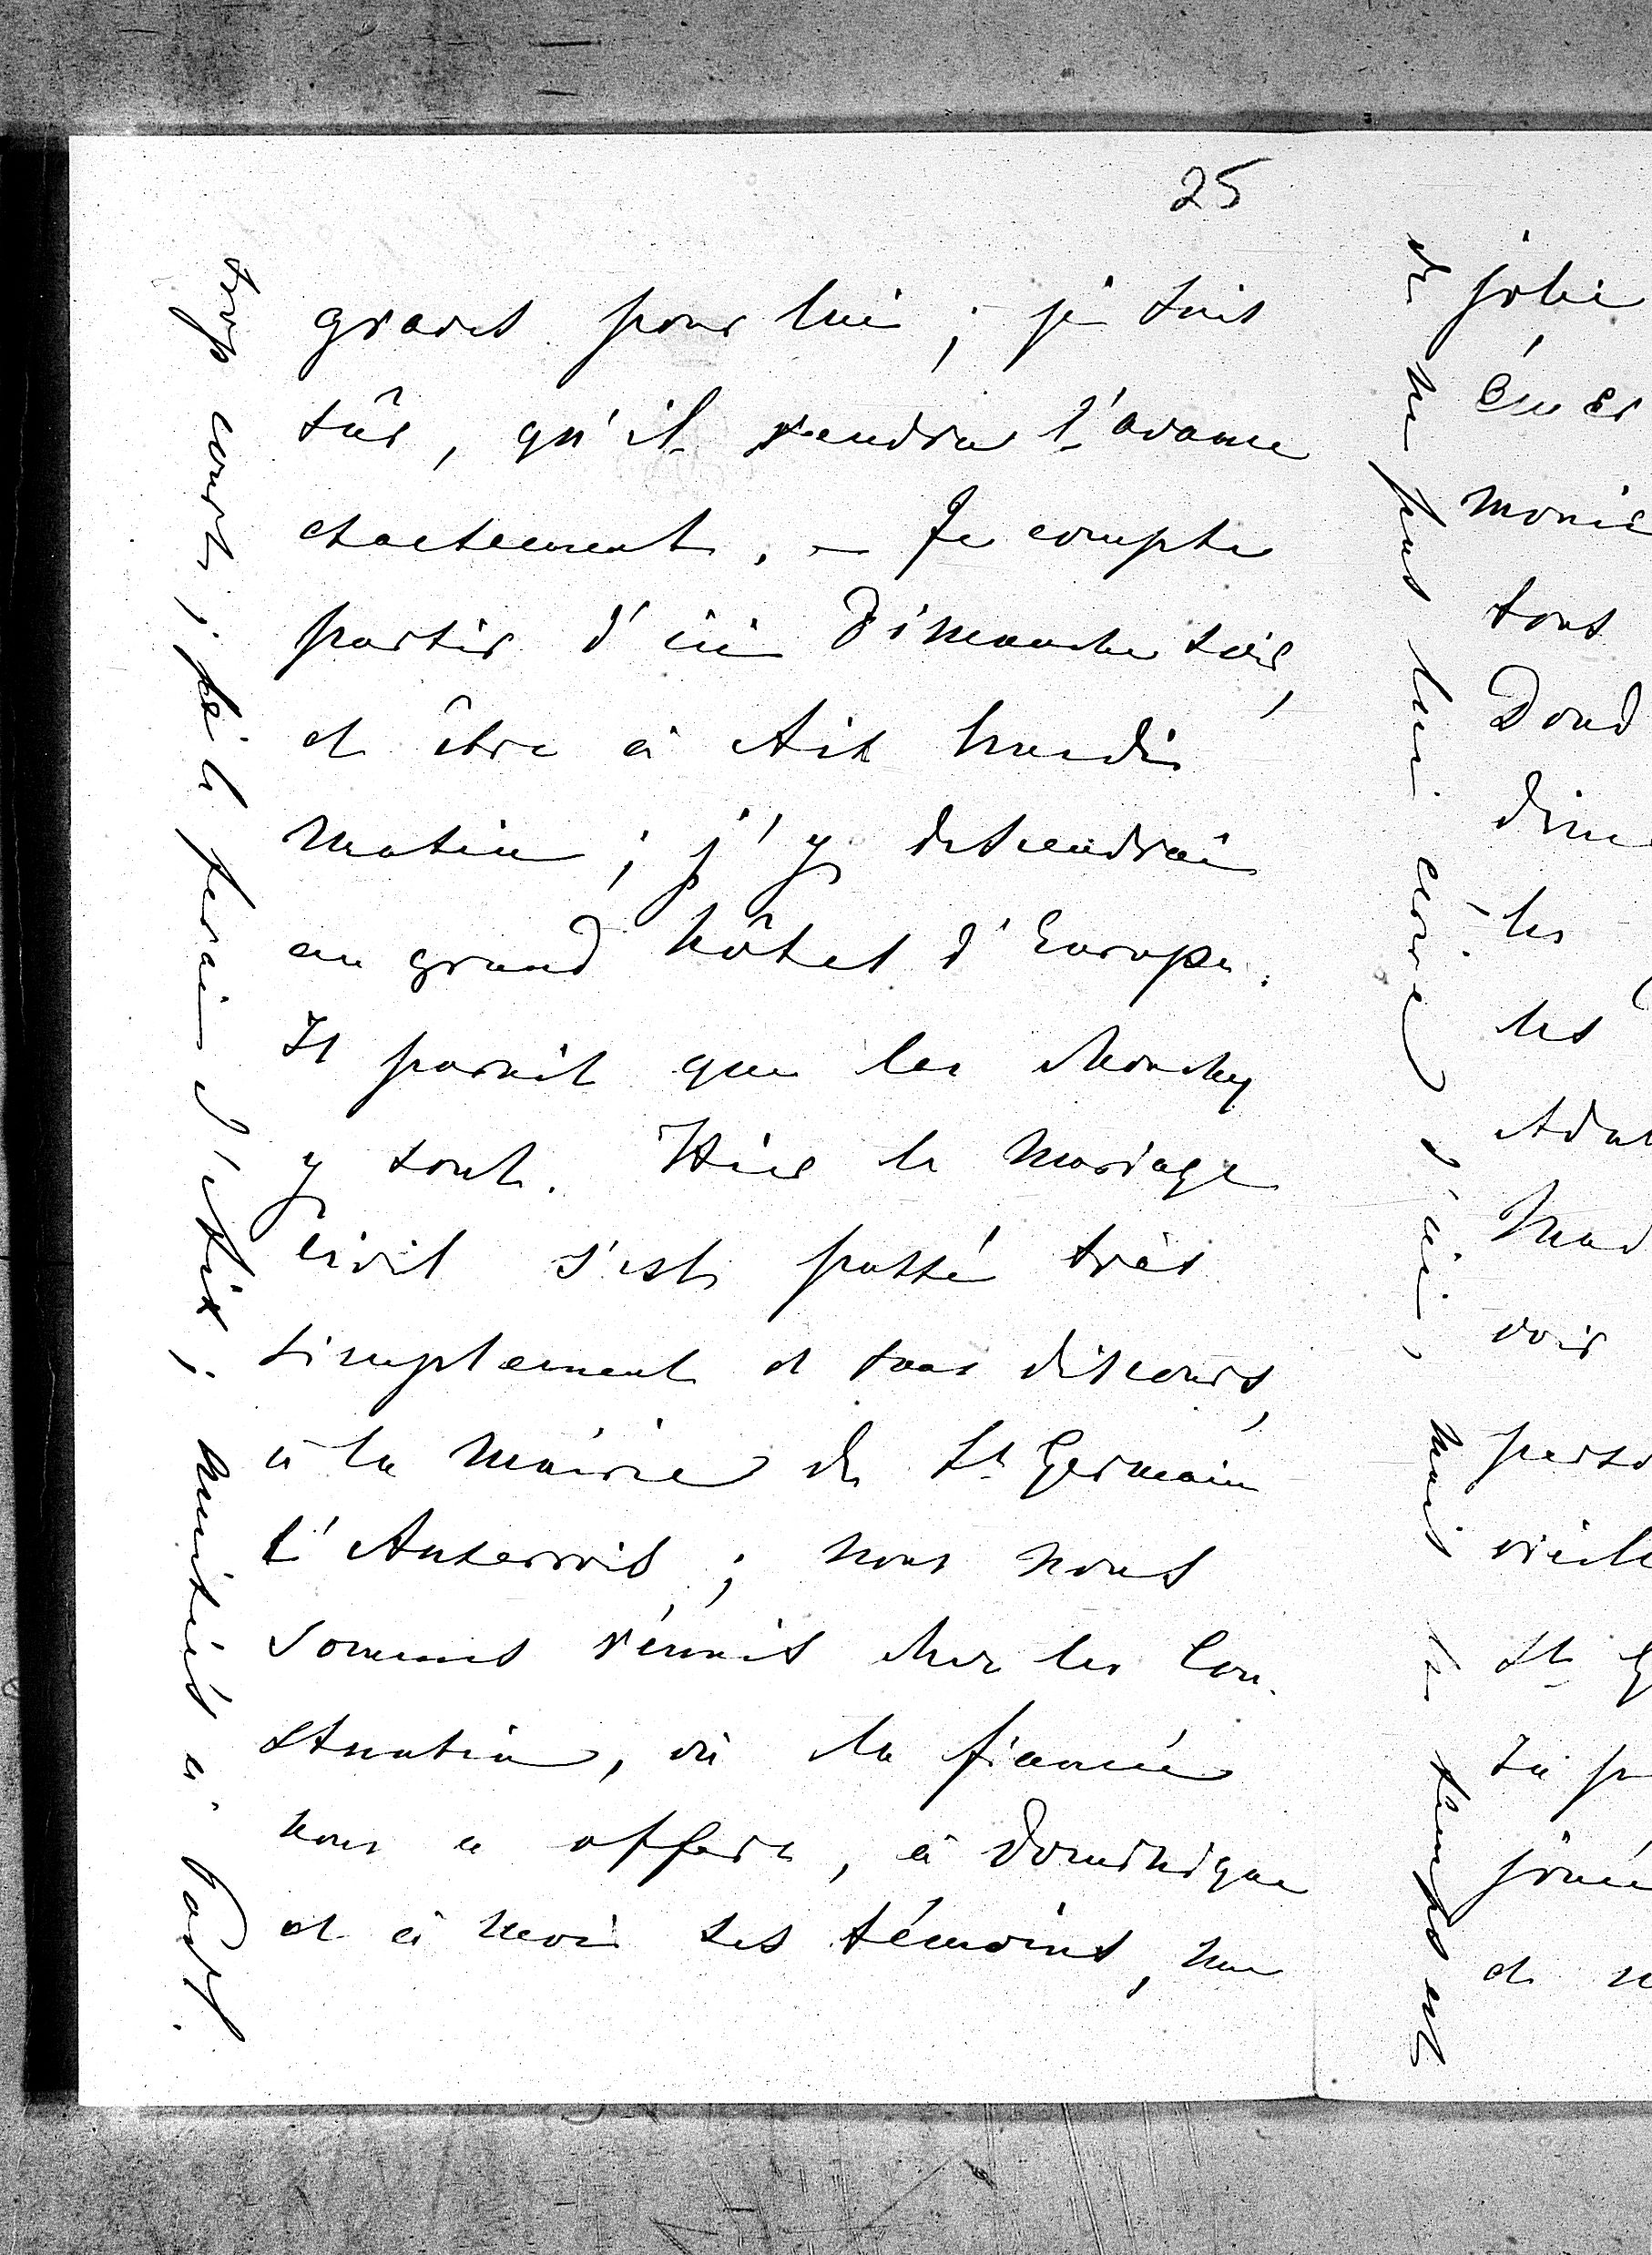 25
graves pour lui ; je suis
sûr, qu'il rendra l'avance
exactement. – Je compte
partir d'ici Dimanche soir,
et être à Aix lundi
matin ; j'y descendrai
au grand hôtel d'Europe.
Il parait que les Mouchy
y sont. Hier le mariage
civil s'est passé très
simplement et sans discours,
à la Mairie de St Germain
l'Auxerrois ; nous nous
sommes réunis chez les Con-
stantin, où la fiancée
nous a offert, à Dominique
et à moi ses témoins, une
trop court ; je le ferai d'Aix ; amitiés à Bary.
jolie
émer
monie
tous
Doud
dine
les
les
Adal
Mad
voir
perso
vieille
St G
su p
et
de ne pas lui écrire d'ici, mais le temps est